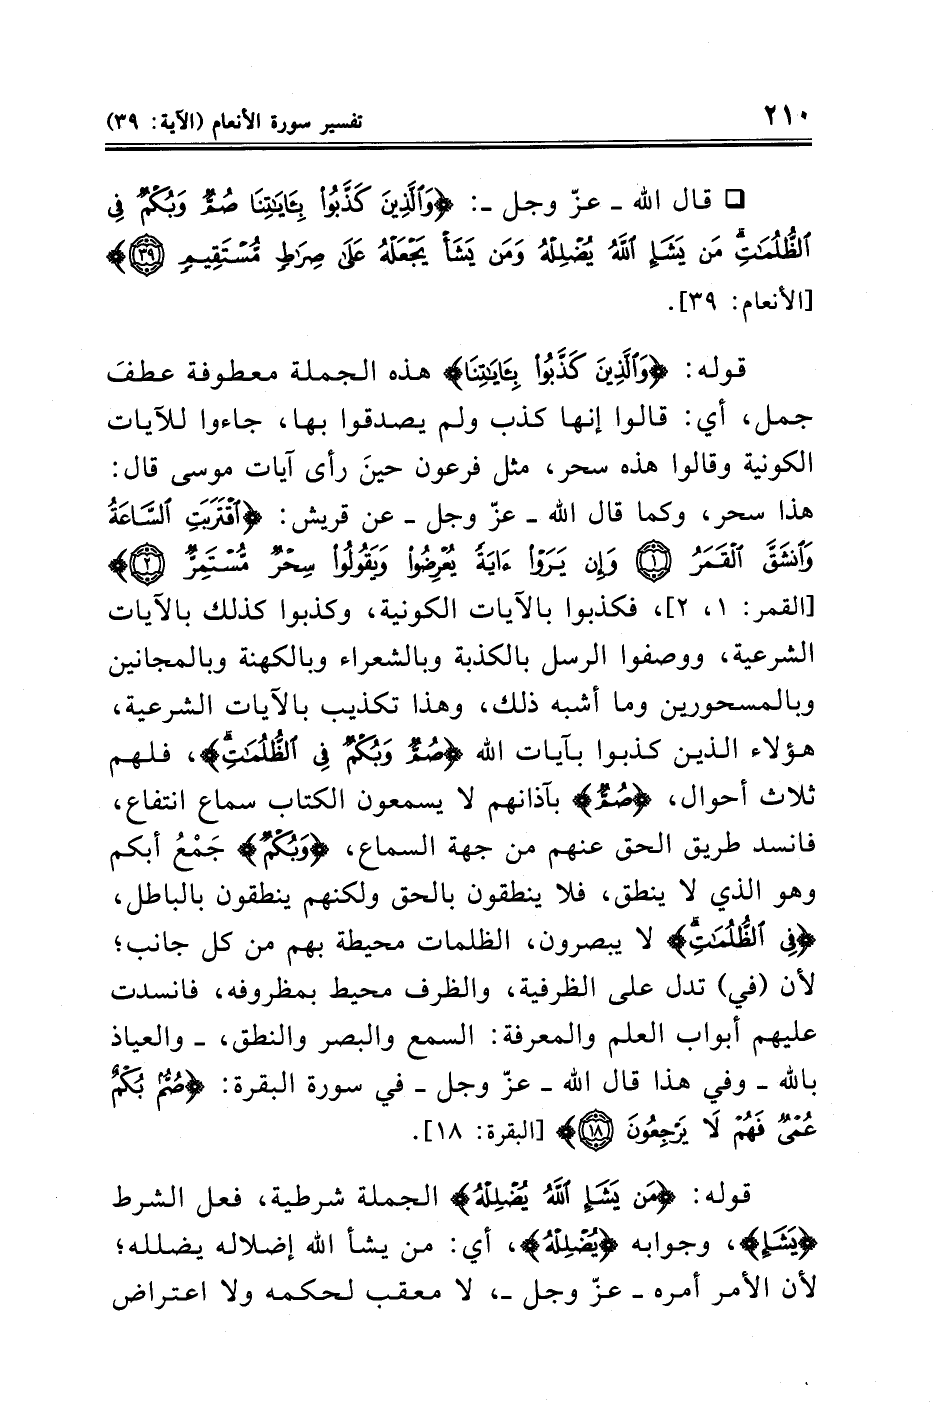 ٢١٠ تفسير سورة الأنعام (الآية: ٣٩)
❑ قال الله ـ عزّ وجل ـ: ﴿وَٱلَّذِينَ كَذَّبُوا۟ بِـَٔايَـٰتِنَا صُمٌّ وَبُكْمٌ فِى
ٱلظُّلُمَـٰتِۗ مَن يَشَإِ ٱللَّهُ يُضْلِلْهُ وَمَن يَشَأْ يَجْعَلْهُ عَلَىٰ صِرَٰطٍ مُّسْتَقِيمٍ ﴿٣٩﴾﴾
[الأنعام: ٣٩].
قوله: ﴿وَٱلَّذِينَ كَذَّبُوا۟ بِـَٔايَـٰتِنَا﴾ هذه الجملة معطوفة عطفَ
جمل، أي: قالوا إنها كذب ولم يصدقوا بها، جاءوا للآيات
الكونية وقالوا هذه سحر، مثل فرعون حينَ رأى آيات موسى قال:
هذا سحر، وكما قال الله ـ عزّ وجل ـ عن قريش: ﴿ٱقْتَرَبَتِ ٱلسَّاعَةُ
وَٱنشَقَّ ٱلْقَمَرُ ﴿١﴾ وَإِن يَرَوْا۟ ءَايَةً يُعْرِضُوا۟ وَيَقُولُوا۟ سِحْرٌ مُّسْتَمِرٌّ ﴿٢﴾﴾
[القمر: ١، ٢]، فكذبوا بالآيات الكونية، وكذبوا كذلك بالآيات
الشرعية، ووصفوا الرسل بالكذبة وبالشعراء وبالكهنة وبالمجانين
وبالمسحورين وما أشبه ذلك، وهذا تكذيب بالآيات الشرعية،
هؤلاء الذين كذبوا بآيات الله ﴿صُمٌّ وَبُكْمٌ فِى ٱلظُّلُمَـٰتِۗ﴾، فلهم
ثلاث أحوال، ﴿صُمٌّ﴾ بآذانهم لا يسمعون الكتاب سماع انتفاع،
فانسد طريق الحق عنهم من جهة السماع، ﴿وَبُكْمٌ﴾ جَمْعُ أبكم
وهو الذي لا ينطق، فلا ينطقون بالحق ولكنهم ينطقون بالباطل،
﴿فِى ٱلظُّلُمَـٰتِۗ﴾ لا يبصرون، الظلمات محيطة بهم من كل جانب؛
لأن (في) تدل على الظرفية، والظرف محيط بمظروفه، فانسدت
عليهم أبواب العلم والمعرفة: السمع والبصر والنطق، ـ والعياذ
بالله ـ وفي هذا قال الله ـ عزّ وجل ـ في سورة البقرة: ﴿صُمٌّۢ بُكْمٌ
عُمْىٌ فَهُمْ لَا يَرْجِعُونَ ﴿١٨﴾﴾ [البقرة: ١٨].
قوله: ﴿مَن يَشَإِ ٱللَّهُ يُضْلِلْهُ﴾ الجملة شرطية، فعل الشرط
﴿يَشَإِ﴾، وجوابه ﴿يُضْلِلْهُ﴾، أي: من يشأ الله إضلاله يضلله؛
لأن الأمر أمره ـ عزّ وجل ـ، لا معقب لحكمه ولا اعتراض